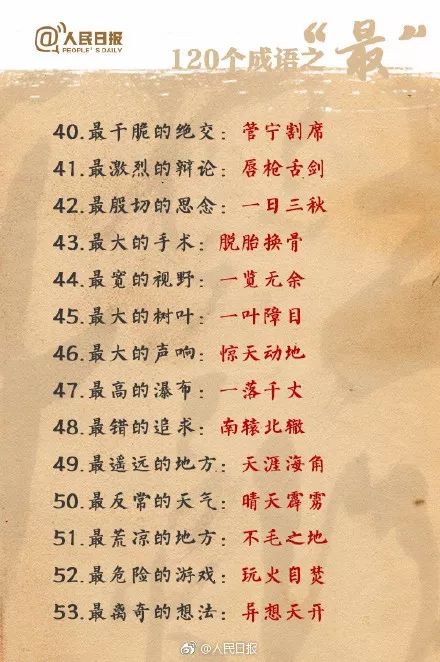 @人民日报
PEOPLE'S DAILY
120个成语之“最”
40.最干脆的绝交：菅宁割席
41.最激烈的辩论：唇枪舌剑
42.最殷切的思念：一日三秋
43.最大的手术：脱胎换骨
44.最宽的视野：一览无余
45.最大的树叶：一叶障目
46.最大的声响：惊天动地
47.最高的瀑布：一落千丈
48.最错的追求：南辕北辙
49.最遥远的地方：天涯海角
50.最反常的天气：晴天霹雳
51.最荒凉的地方：不毛之地
52.最危险的游戏：玩火自焚
53.最离奇的想法：异想天开
@人民日报